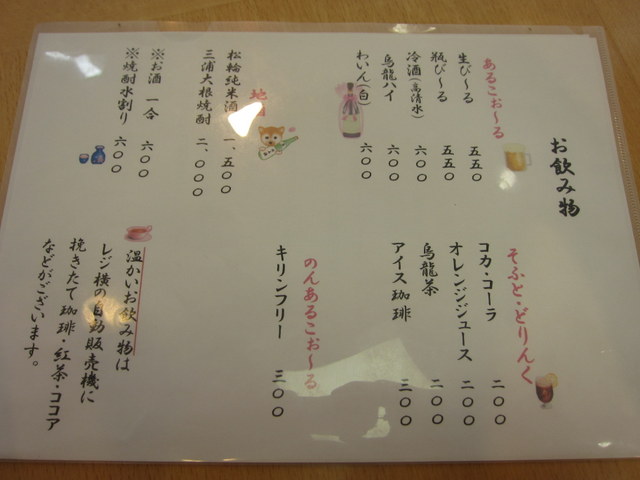 お飲み物
あるこぉ〜る
生び〜る 五五〇
瓶び〜る 五五〇
冷酒(高清水) 六〇〇
烏龍ハイ 六〇〇
わいん(白) 六〇〇
地
松輪純米酒 一、五〇〇
三浦大根焼酎 二、〇〇〇
※お酒 一合 六〇〇
※焼酎水割り 六〇〇
そふと・どりんく
コカ・コーラ 二〇〇
オレンジジュース 二〇〇
烏龍茶 二〇〇
アイス珈琲 三〇〇
のんあるこぉ〜る
キリンフリー 三〇〇
温かいお飲み物は
レジ横の自動販売機に
挽きたて珈琲・紅茶・ココア
などがございます。